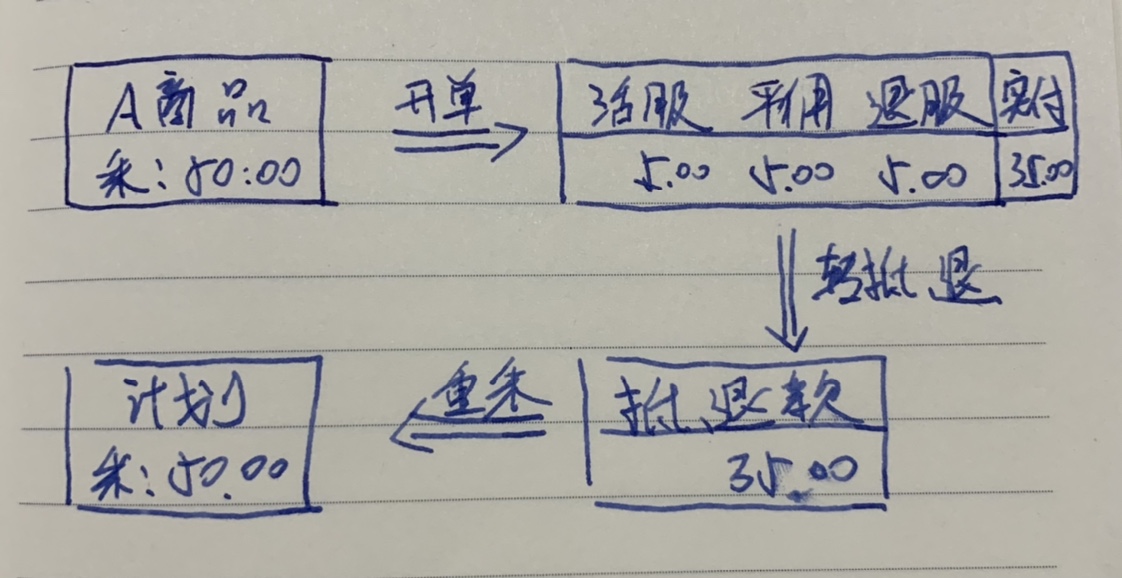 A商品
采：50:00
开单
活服 平佣 退服 实付
5.00 5.00 5.00 35.00
转批退
批退款
35.00
重采
计划
采：50.00